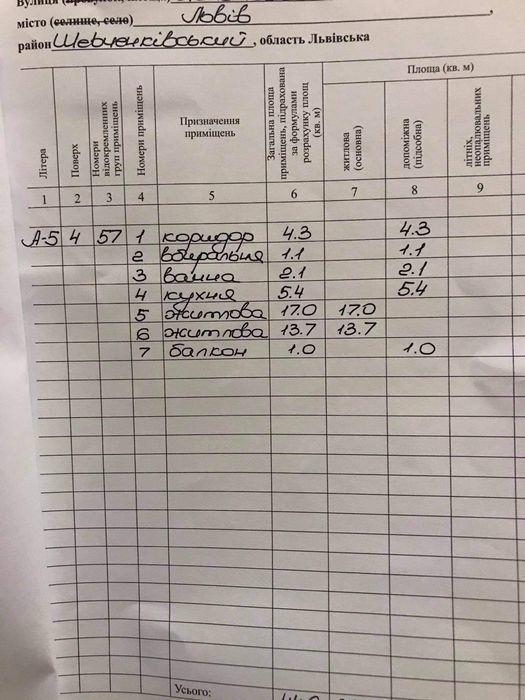 місто (селище, село) Львів
район Шевченківський, область Львівська
Літера
Поверх
Номери відокремлених груп приміщень
Номери приміщень
Призначення приміщень
Загальна площа приміщень, підрахована за формулами розрахунку площ (кв. м)
Площа (кв. м)
житлова (основна)
допоміжна (підсобна)
літніх, неопалювальних приміщень
1 2 3 4 5 6 7 8 9
А-5 4 57 1 коридор 4.3 4.3
2 вбиральня 1.1 1.1
3 ванна 2.1 2.1
4 кухня 5.4 5.4
5 житлова 17.0 17.0
6 житлова 13.7 13.7
7 балкон 1.0 1.0
Усього: